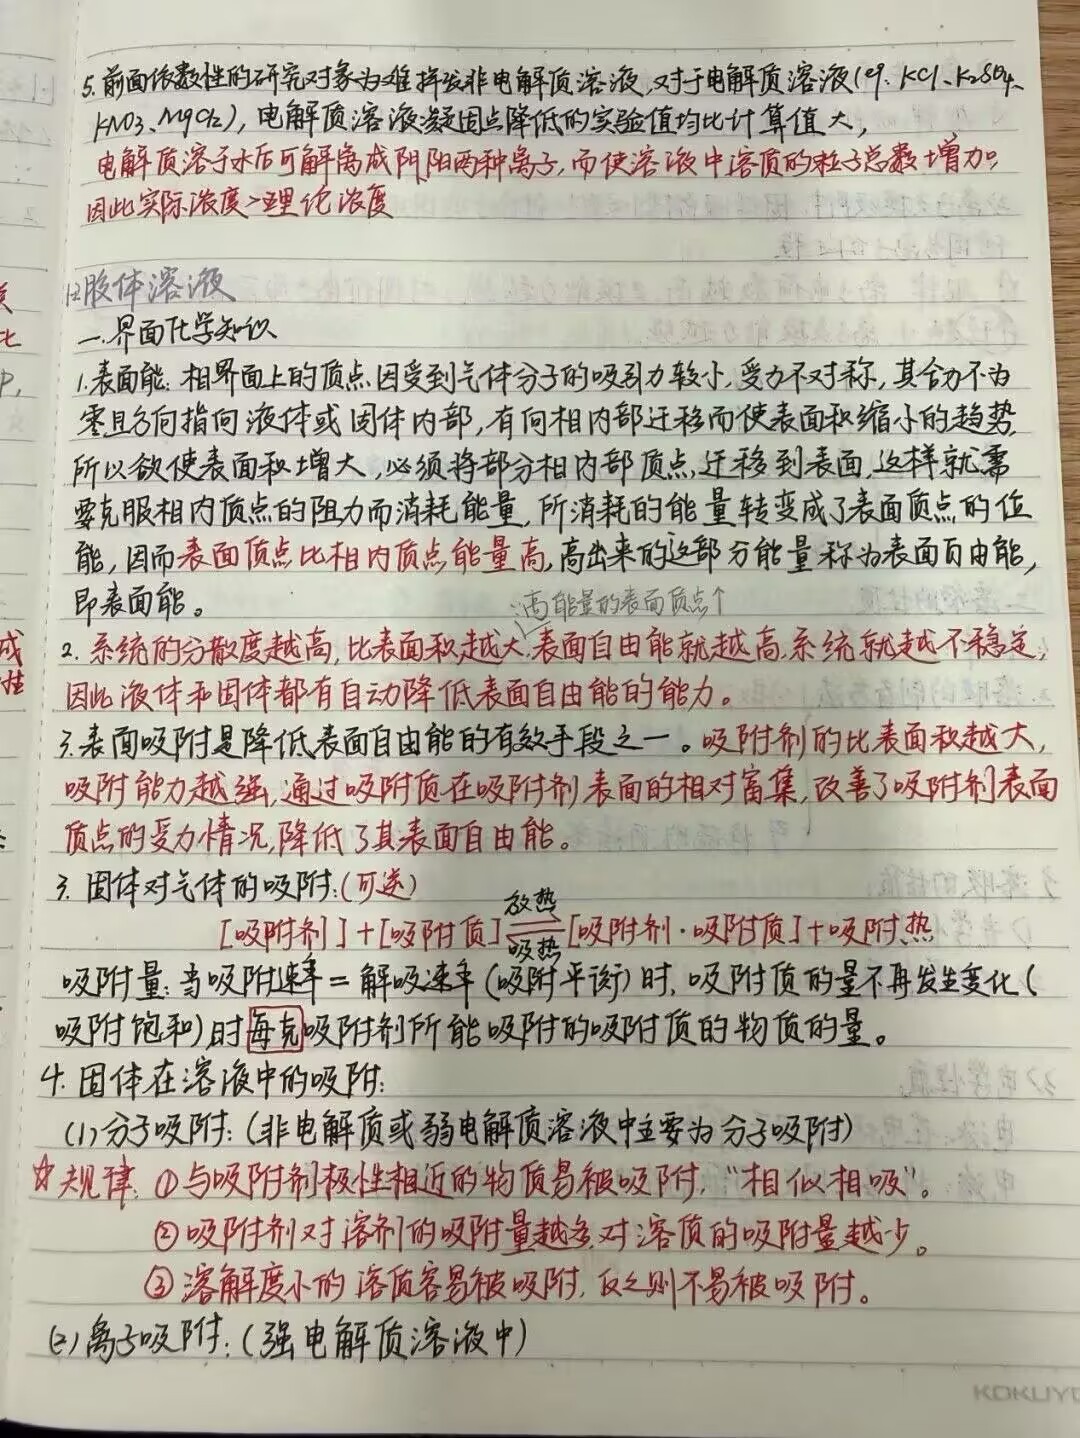 5.前面依数性的研究对象为难挥发非电解质溶液,对于电解质溶液(eg. KCl、K2SO4、
KNO3、MgCl2),电解质溶液凝固点降低的实验值均比计算值大,
电解质溶于水后可解离成阴阳两种离子,而使溶液中溶质的粒子总数增加,
因此实际浓度>理论浓度
胶体溶液
一.界面化学知识
1.表面能:相界面上的顶点因受到气体分子的吸引力较小,受力不对称,其合力不为
零且方向指向液体或固体内部,有向相内部迁移而使表面积缩小的趋势,
所以欲使表面积增大,必须将部分相内部顶点迁移到表面,这样就需
要克服相内顶点的阻力而消耗能量,所消耗的能量转变成了表面顶点的位
能,因而表面顶点比相内顶点能量高,高出来的这部分能量称为表面自由能,
即表面能。
高能量的表面顶点↑
2.系统的分散度越高,比表面积越大,表面自由能就越高,系统就越不稳定,
因此液体和固体都有自动降低表面自由能的能力。
3.表面吸附是降低表面自由能的有效手段之一。吸附剂的比表面积越大,
吸附能力越强,通过吸附质在吸附剂表面的相对富集,改善了吸附剂表面
顶点的受力情况,降低了其表面自由能。
3.固体对气体的吸附:(可逆)
[吸附剂]+[吸附质]⇌[吸附剂·吸附质]+吸附热
放热
吸热
吸附量:当吸附速率=解吸速率(吸附平衡)时,吸附质的量不再发生变化(
吸附饱和)时每克吸附剂所能吸附的吸附质的物质的量。
4.固体在溶液中的吸附:
(1)分子吸附:(非电解质或弱电解质溶液中主要为分子吸附)
☆规律:①与吸附剂极性相近的物质易被吸附,“相似相吸”。
②吸附剂对溶剂的吸附量越多,对溶质的吸附量越少。
③溶解度小的溶质容易被吸附,反之则不易被吸附。
(2)离子吸附:(强电解质溶液中)
KOKUYO